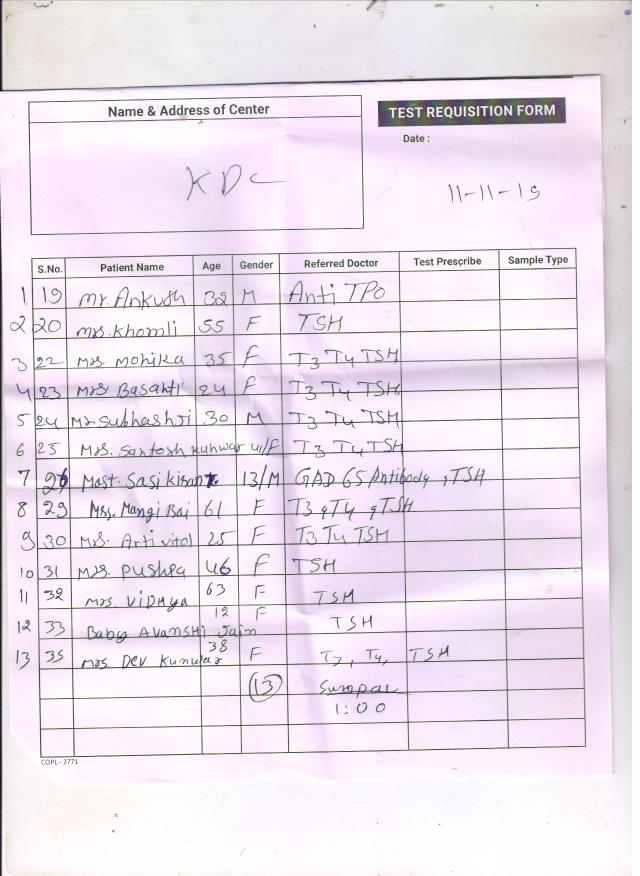 Name & Address of Center
TEST REQUISITION FORM
Date :
KDC
11-11-19
S.No. Patient Name Age Gender Referred Doctor Test Prescribe Sample Type
1 19 Mr. Ankush 32 M Anti TPO
2 20 Mrs. Khomli 55 F TSH
3 22 Mrs. Mohika 35 F T3 T4 TSH
4 23 Mrs Basanti 24 F T3 T4 TSH
5 24 Mr Subhashji 30 M T3 T4 TSH
6 25 Mrs. Santosh Kunwar 41/F T3 T4 TSH
7 26 Mast. Sasi Kiran 13/M GAD 65 Antibody, TSH
8 29 Mrs. Mangi Bai 61 F T3, T4, TSH
9 30 Mrs. Arti vitol 25 F T3 T4 TSH
10 31 Mrs. Pushpa 46 F TSH
11 32 Mrs. Vidhya 63 F TSH
12 33 Baby Avanshi Jain 12 F TSH
13 35 Mrs. Dev Kunwar 38 F T3, T4, TSH
13
1:00
COPL - 2771